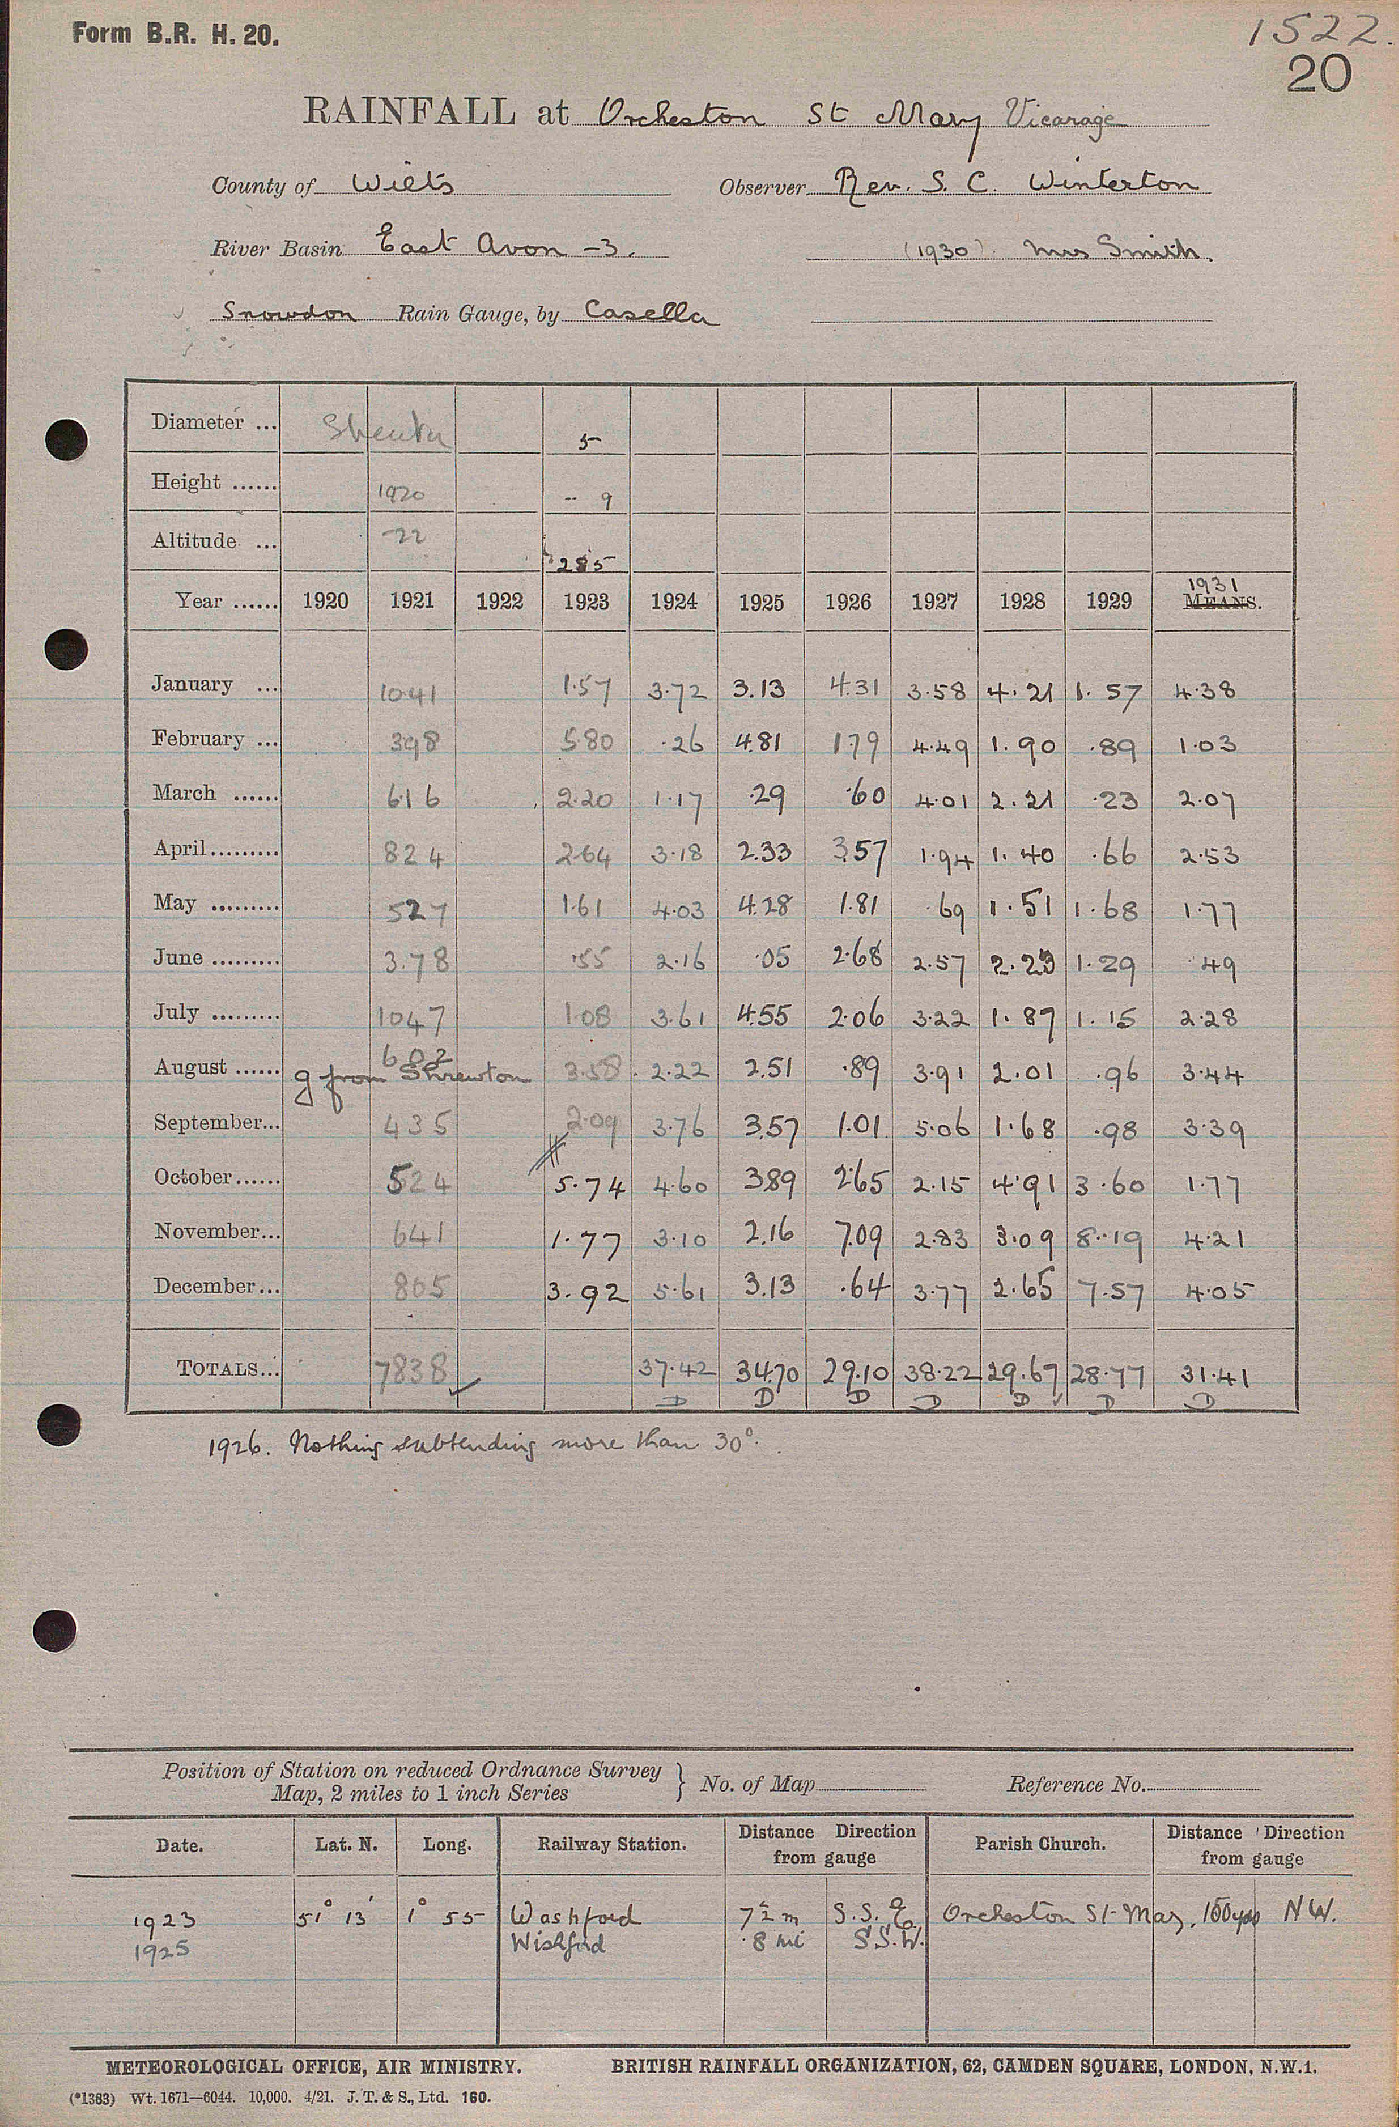 Form B.R. H. 20.
1522.
20
RAINFALL at Orcheston St Mary Vicarage
County of Wilts Observer Rev. S. C. Winterton
River Basin East Avon -3. (1930) Mrs Smith.
Snowdon Rain Gauge, by Casella
Diameter ... 5
Height ...... 1920 - 9
Altitude ... -22 285
Year ...... 1920 1921 1922 1923 1924 1925 1926 1927 1928 1929 1931 MEANS.
January ... 1041 1.57 3.72 3.13 4.31 3.58 4.21 1.57 4.38
February ... 398 5.80 .26 4.81 1.79 4.49 1.90 .89 1.03
March ...... 616 2.20 1.17 .29 .60 4.01 2.21 .23 2.07
April ......... 824 2.64 3.18 2.33 3.57 1.94 1.40 .66 2.53
May ......... 527 1.61 4.03 4.28 1.81 .69 1.51 1.68 1.77
June ......... 3.78 .55 2.16 .05 2.68 2.57 2.23 1.29 .49
July ......... 1047 1.08 3.61 4.55 2.06 3.22 1.87 1.15 2.28
August ...... 602 g from Shrewton 3.58 2.22 2.51 .89 3.91 2.01 .96 3.44
September... 435 2.09 3.76 3.57 1.01 5.06 1.68 .98 3.39
October ...... 524 5.74 4.60 3.89 2.65 2.15 4.91 3.60 1.77
November... 641 1.77 3.10 2.16 7.09 2.83 3.09 8.19 4.21
December... 805 3.92 5.61 3.13 .64 3.77 2.65 7.57 4.05
TOTALS... 7838 37.42 34.70 29.10 38.22 29.67 28.77 31.41
D D D D D D D
1926. Nothing subtending more than 30°.
Position of Station on reduced Ordnance Survey
Map, 2 miles to 1 inch Series } No. of Map Reference No.
Date. Lat. N. Long. Railway Station. Distance Direction from gauge Parish Church. Distance Direction from gauge
1923 51° 13' 1° 55 Washford 7½ m S.S.E. Orcheston St. Mary, 150 yds NW.
1925 Wishford 8 mi S.S.W.
METEOROLOGICAL OFFICE, AIR MINISTRY. BRITISH RAINFALL ORGANIZATION, 62, CAMDEN SQUARE, LONDON, N.W.1.
(*1383) Wt. 1671—6044. 10,000. 4/21. J. T. & S., Ltd. 160.